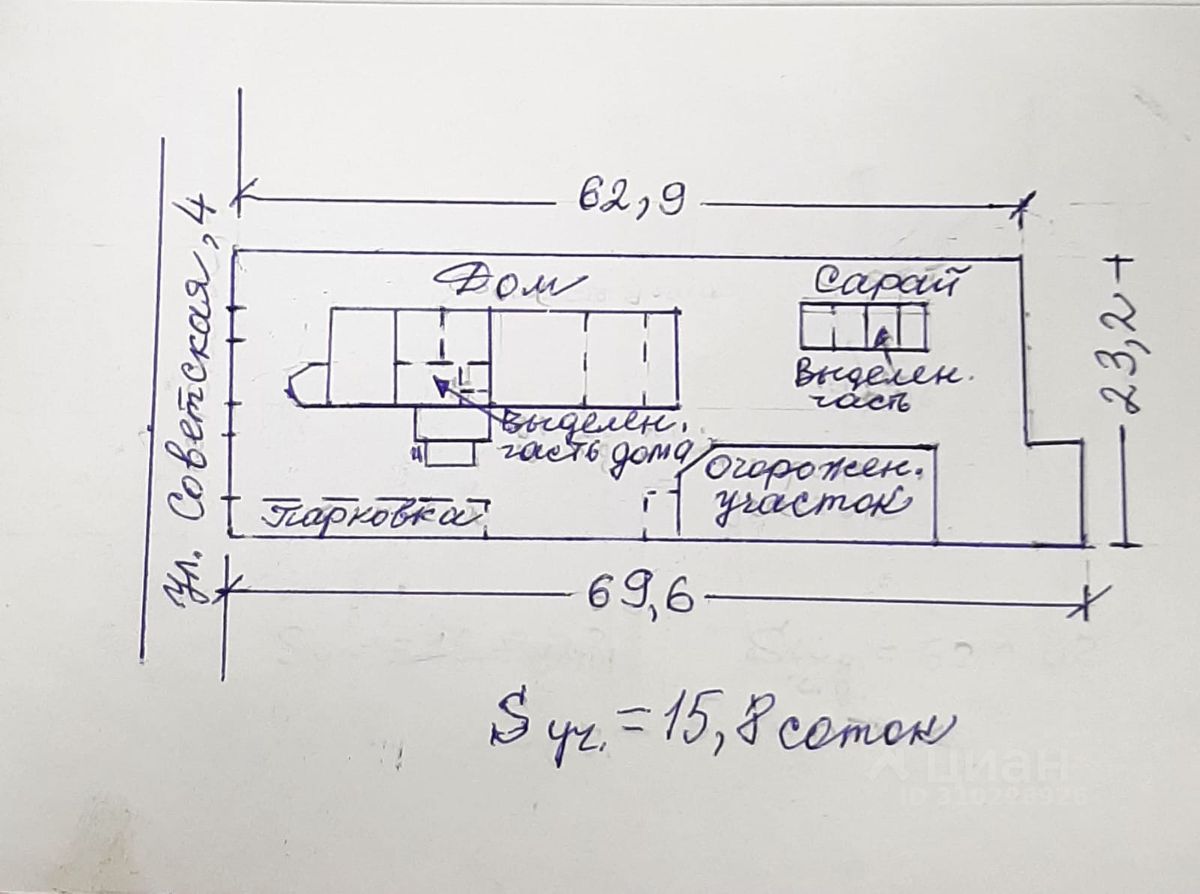 62,9
ул. Советская, 4
Дом
Сарай
23,2
Выделен.
часть
Выделен.
часть дома
Огорожен.
участок
Парковка
69,6
S уч. = 15,8 соток
циан